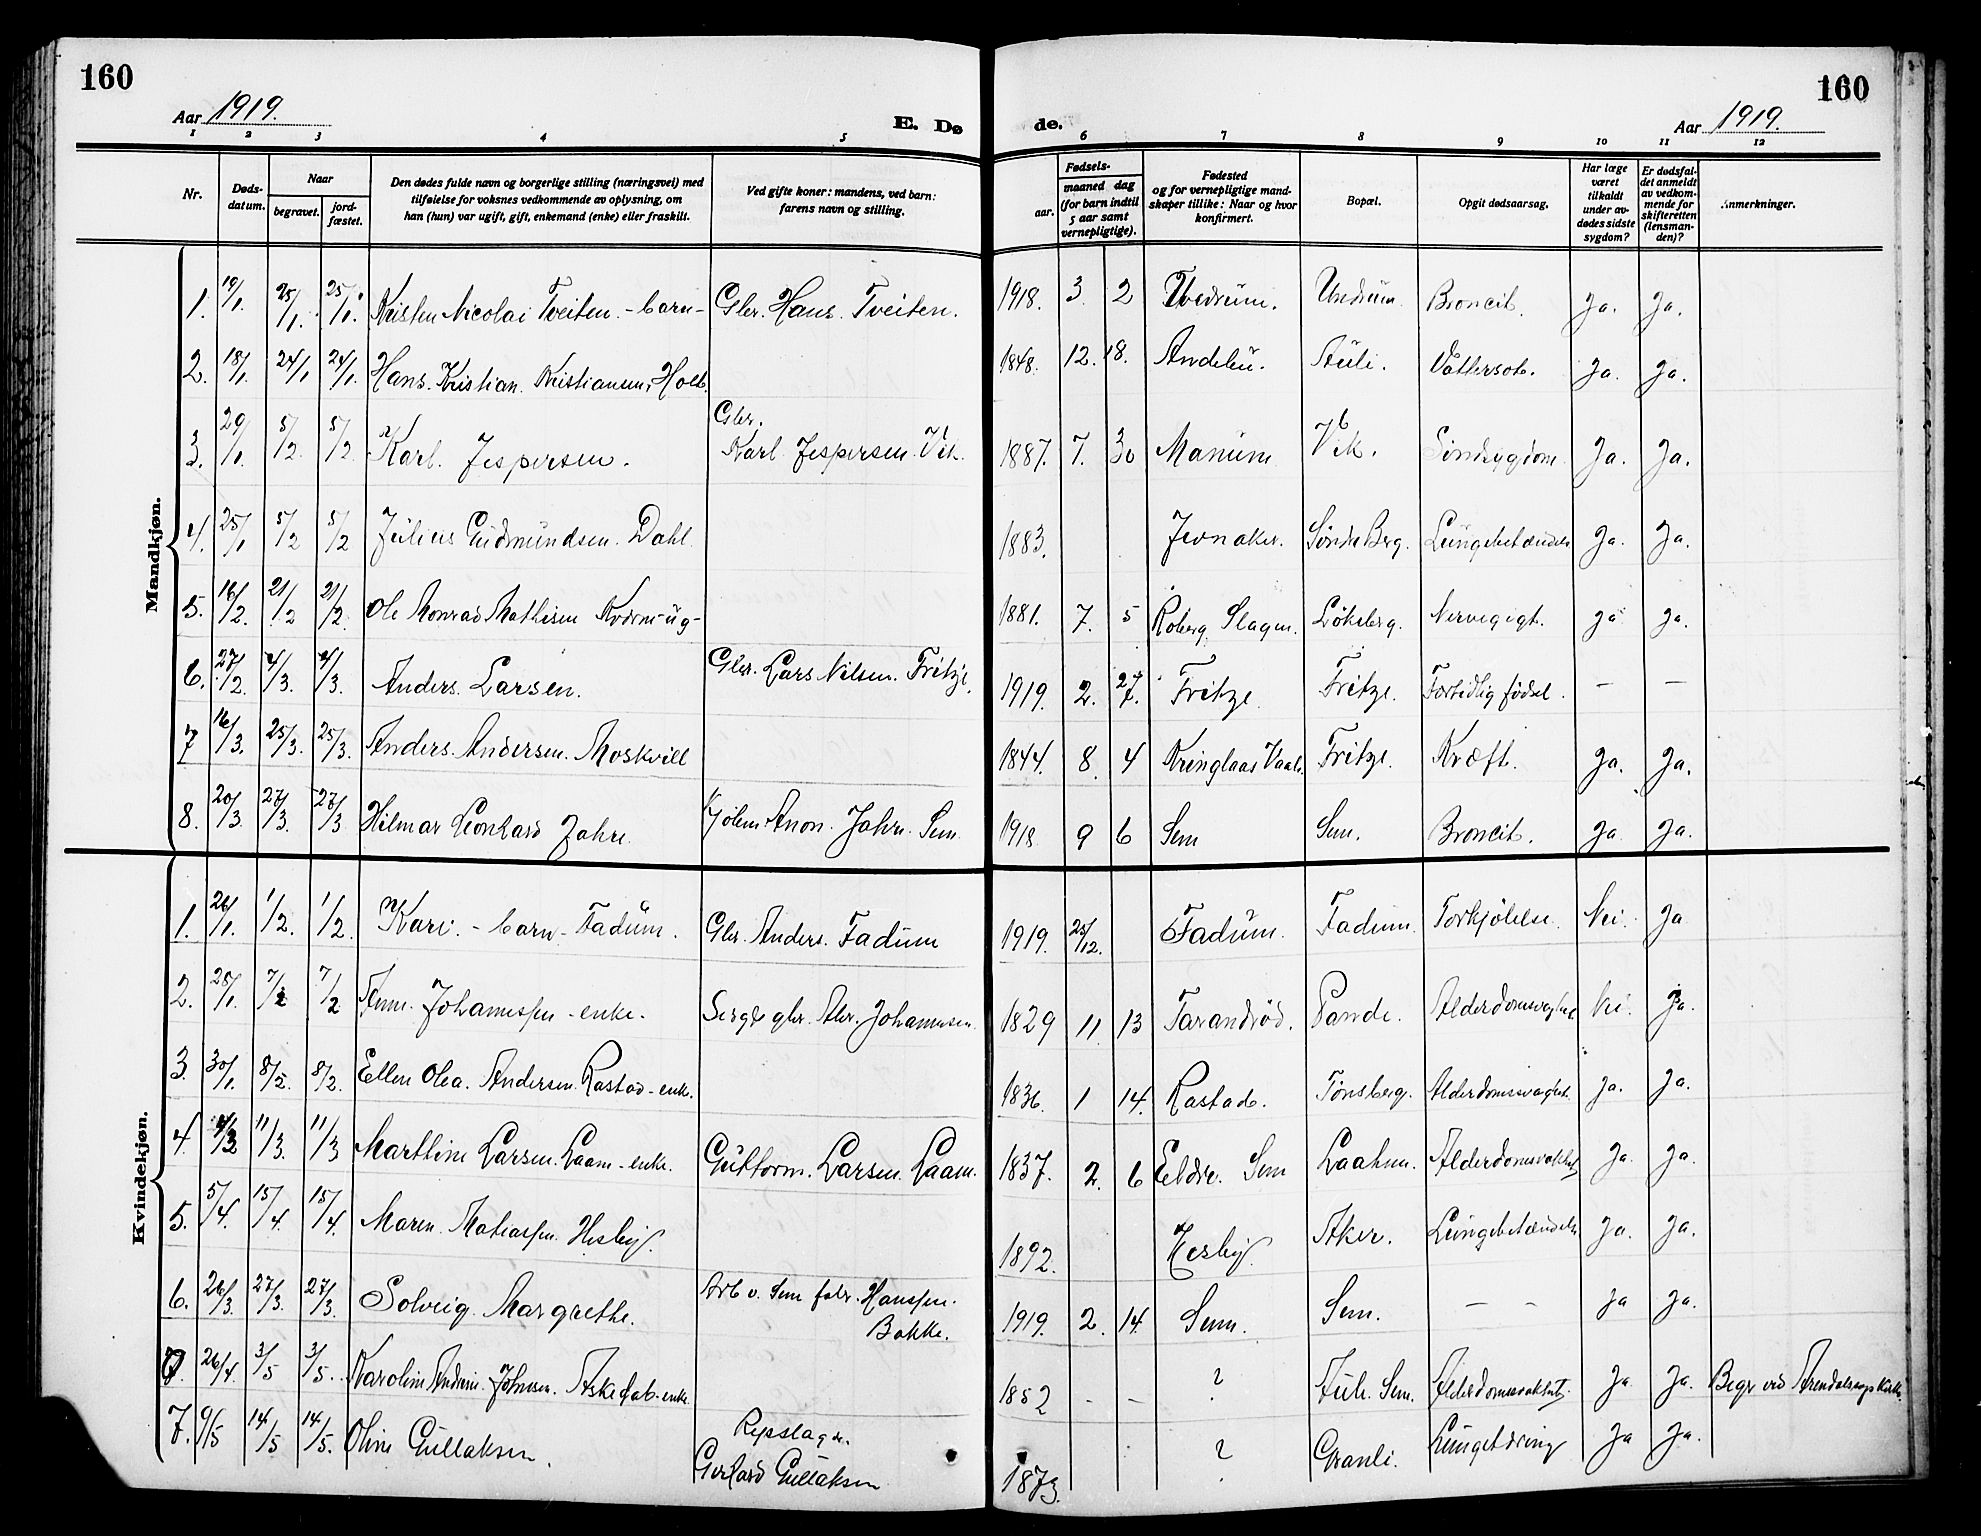 160
160
Aar 1919.
E. Dø
de.
Aar 1919.
1 2 3 4 5 6 7 8 9 10 11 12
Nr.
Døds-
datum.
Naar
begravet.
jord-
fæstet.
Den dødes fulde navn og borgerlige stilling (næringsvei) med
tilføielse for voksnes vedkommende av oplysning, om
han (hun) var ugift, gift, enkemand (enke) eller fraskilt.
Ved gifte koner: mandens, ved barn:
farens navn og stilling.
aar.
Fødsels-
maaned dag
(for barn indtil
5 aar samt
vernepligtige).
Fødested
og for vernepligtige mand-
skaper tillike: Naar og hvor
konfirmert.
Bopæl.
Opgit dødsaarsag.
Har læge
været
tilkaldt
under av-
dødes sidste
sygdom?
Er dødsfal-
det anmeldt
av vedkom-
mende for
skifteretten
(lensman-
den)?
Anmerkninger.
Mandkjøn.
1. 19/1. 25/1. 25/1. Kristen Nicolai Tveiten. - barn - Gbr. Hans. Tveiten. 1918. 3. 2 Undrum. Undrum. Broncit. Ja. Ja.
2. 18/1. 24/1 24/1. Hans. Kristian. Kristiansen, Holt. 1848. 12. 18. Andebu. Auli. Vattersot. Ja. Ja.
3. 29/1. 5/2 5/2. Karl. Jespersen. Gbr. Karl Jespersen Vik. 1887. 7. 30 Manum Vik. Sindsygdom. Ja. Ja.
4. 25/1 5/2 5/2 Julius Gudmundsen. Dahl. 1883. Jevnaker. Søndre Berg. Lungebetændelse Ja. Ja.
5. 16/2. 21/2 21/2. Ole Konrad Mathisen 1881. 7. 5 Roberg Slagen. Løksberg. Nervegigt. Ja Ja.
6. 27/2. 4/3. 4/3. Anders. Larsen. Gbr. Lars Nilsen. Fritze. 1919. 2. 27. Fritze. Fritze. Fortidlig fødsel. - -
7 16/3. 25/3. 25/3. Anders. Andersen. Moskvill 1844. 8. 4 Kringlaas Vaale. Fritze. Kræft. Ja. Ja.
8. 20/3. 27/3. 27/3 Hilmar Leonhard Jahre. Anon. Jahre. Sem. 1918 9 6 Sem Sem. Broncit. Ja Ja.
Kvindekjøn.
1. 26/1. 1/2. 1/2. Kari. - barn - Fadum. Gbr. Anders. Fadum 1919. 25/12. Fadum. Fadum. Forkjølelse. Nei. Ja
2. 28/1. 7/2 7/2 Anne. Johannessen - enke. gbr. Abr. Johannesen. 1829 11 13 Tarandrød. Pande. Alderdomsvaghet Nei. Ja.
3. 30/1. 8/2. 8/2. Ellen Olea. Andersen. Rastad - enke. 1836. 1 14. Rastad. Tønsberg. Alderdomsvaghet. Ja. Ja.
4. 4/3 11/3. 11/3 Marthine Larsen. Laam - enke. Guttorm. Larsen. Laam. 1837. 2. 6 Sem Alderdomsvakhet Ja. Ja.
5. 5/4. 15/4. 15/4. Maren. Matiassen. Hesby. 1892. Hesby. Aker. Lungebetændelse Ja. Ja.
6. 26/3. 27/3. 27/3. Solveig. Margrethe. Arb. v. Sem fabr. Hanssen. Bakke. 1919. 2. 14. Sem. Sem. - - Ja Ja.
26/4 3/5 3/5. Karoline Andrine. Johnsen. enke. 1852 - - ? Sem. Alderdomsvakhet. Ja Ja. Begr ved
7. 9/5 14/5 14/5. Oline Gullaksen. Repslag. Gerhard Gullaksen 1873. ? Granli. Lungetæring Ja Ja.